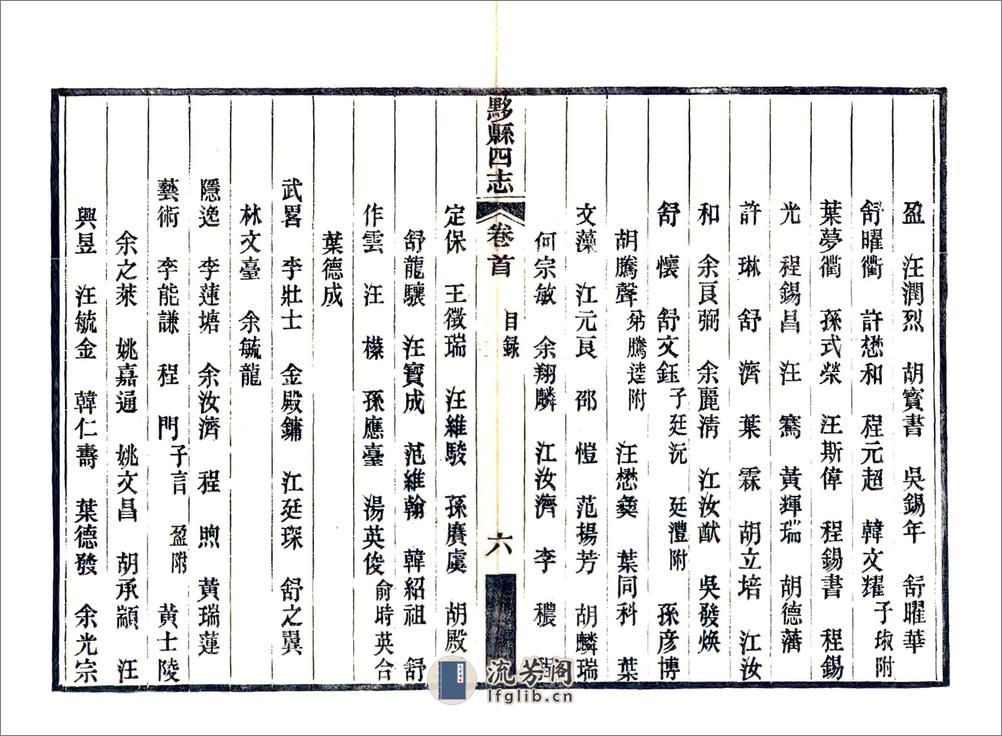 盈　汪潤烈　胡寶書　吳錫年　舒曜華
舒曜衢　許懋和　程元超　韓文耀子琡附
葉夢衢　孫式榮　汪斯偉　程錫書　程錫
光　程錫昌　汪騫　黃輝瑞　胡德藩
許琳　舒濟　葉霖　胡立培　江汝
和　余艮弼　余麗清　江汝猷　吳發煥
舒懷　舒文鈺子廷沅　廷澧附　孫彥博
胡騰聲弟騰逵附　汪懋彝　葉同科　葉
文藻　江元良　邵愷　范揚芳　胡麟瑞
何宗敏　余翔麟　江汝濟　李穠
黟縣四志　卷首　目錄　六
定保　王徵瑞　汪維駿　孫賡虞　胡殿
舒龍驤　汪寶成　范維翰　韓紹祖　舒
作雲　汪榛　孫應臺　湯英俊俞時英合
葉德成
武畧　李壯士　金殿鏞　江廷琛　舒之翼
林文臺　余毓龍
隱逸　李蓮塘　余汝濟　程煦　黃瑞蓮
藝術　李能謙　程門子言　盈附　黃士陵
余之萊　姚嘉通　姚文昌　胡承顓　汪
興昱　汪毓金　韓仁壽　葉德發　余光宗
流芳阁
lfglib.cn